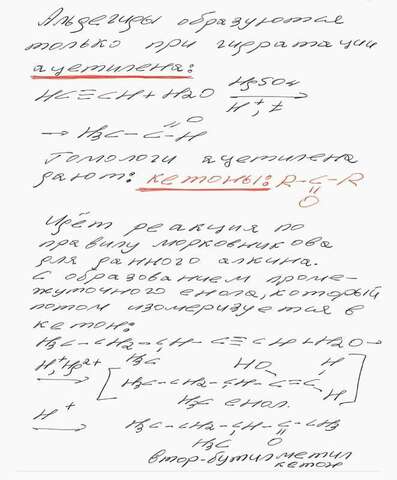 Альдегиды образуются
только при гидратации
ацетилена:
HC≡CH + H2O H2SO4
H+, t
O
→ H3C – C – H
Гомологи ацетилена
дают: кетоны: R–C–R
O
Идёт реакция по
правилу морковникова
для данного алкина.
с образованием проме-
жуточного енола, который
потом изомеризуется в
кетон:
H3C – CH2 – CH – C≡CH + H2O →
H3C
H,+ Hg2+
HO H
H3C – CH2 – CH – C=C
H
H3C енол.
H+
H3C – CH2 – CH – C – CH3
H3C O
втор-бутилметил
кетон